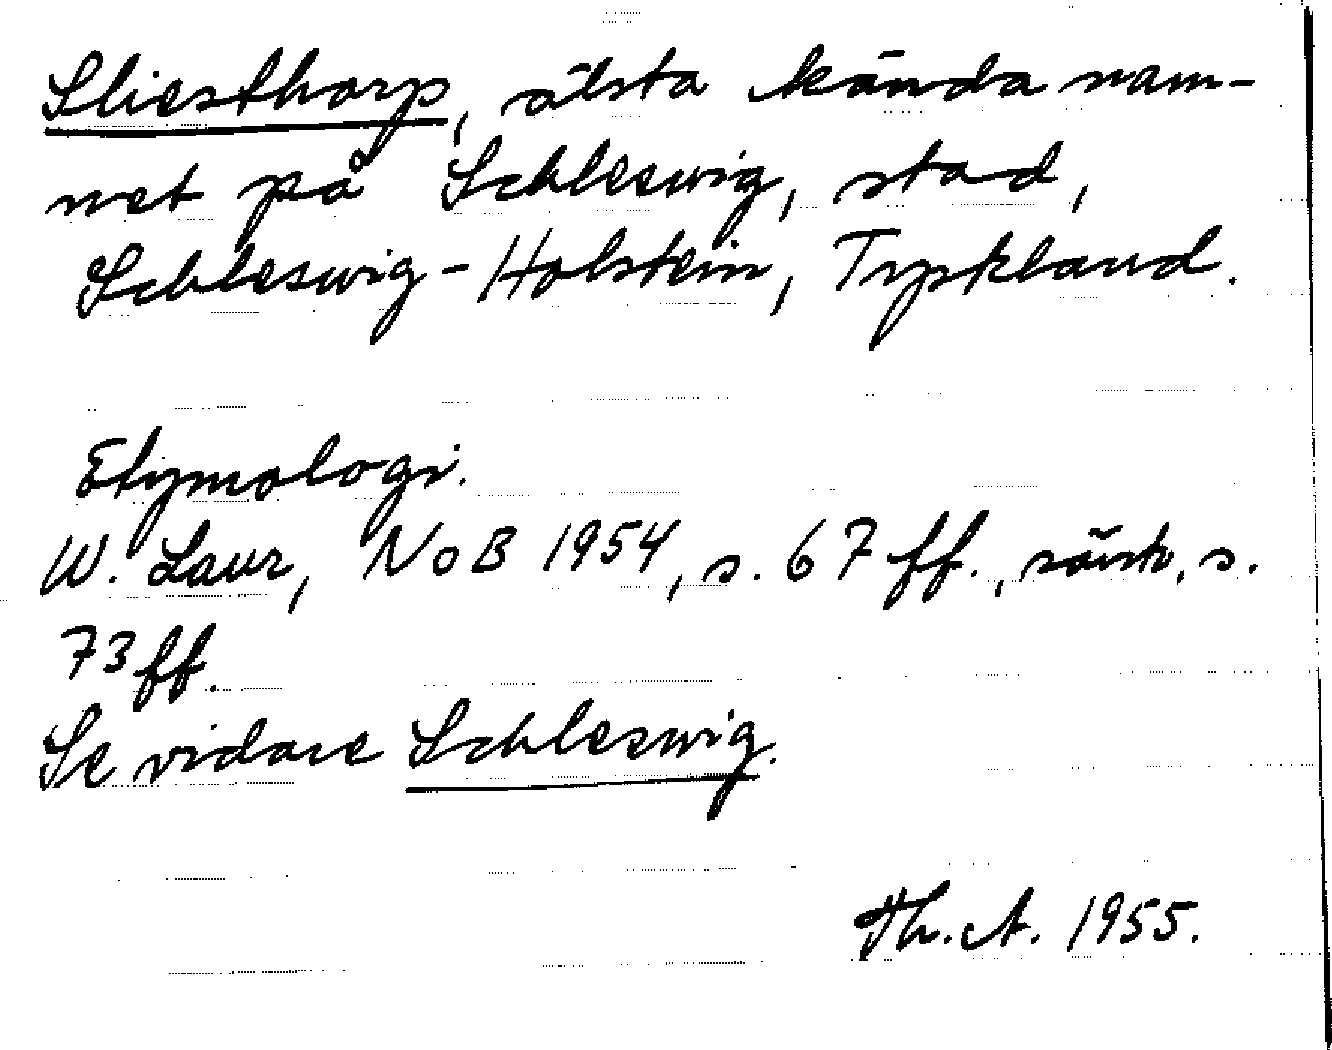 Sliesthorp, älsta kända nam-
net på Schleswig, stad,
Schleswig-Holstein, Tyskland.
Etymologi.
W. Laur, NoB 1954, s. 67 ff., särsk. s.
73 ff.
Se vidare Schleswig.
Th. A. 1955.